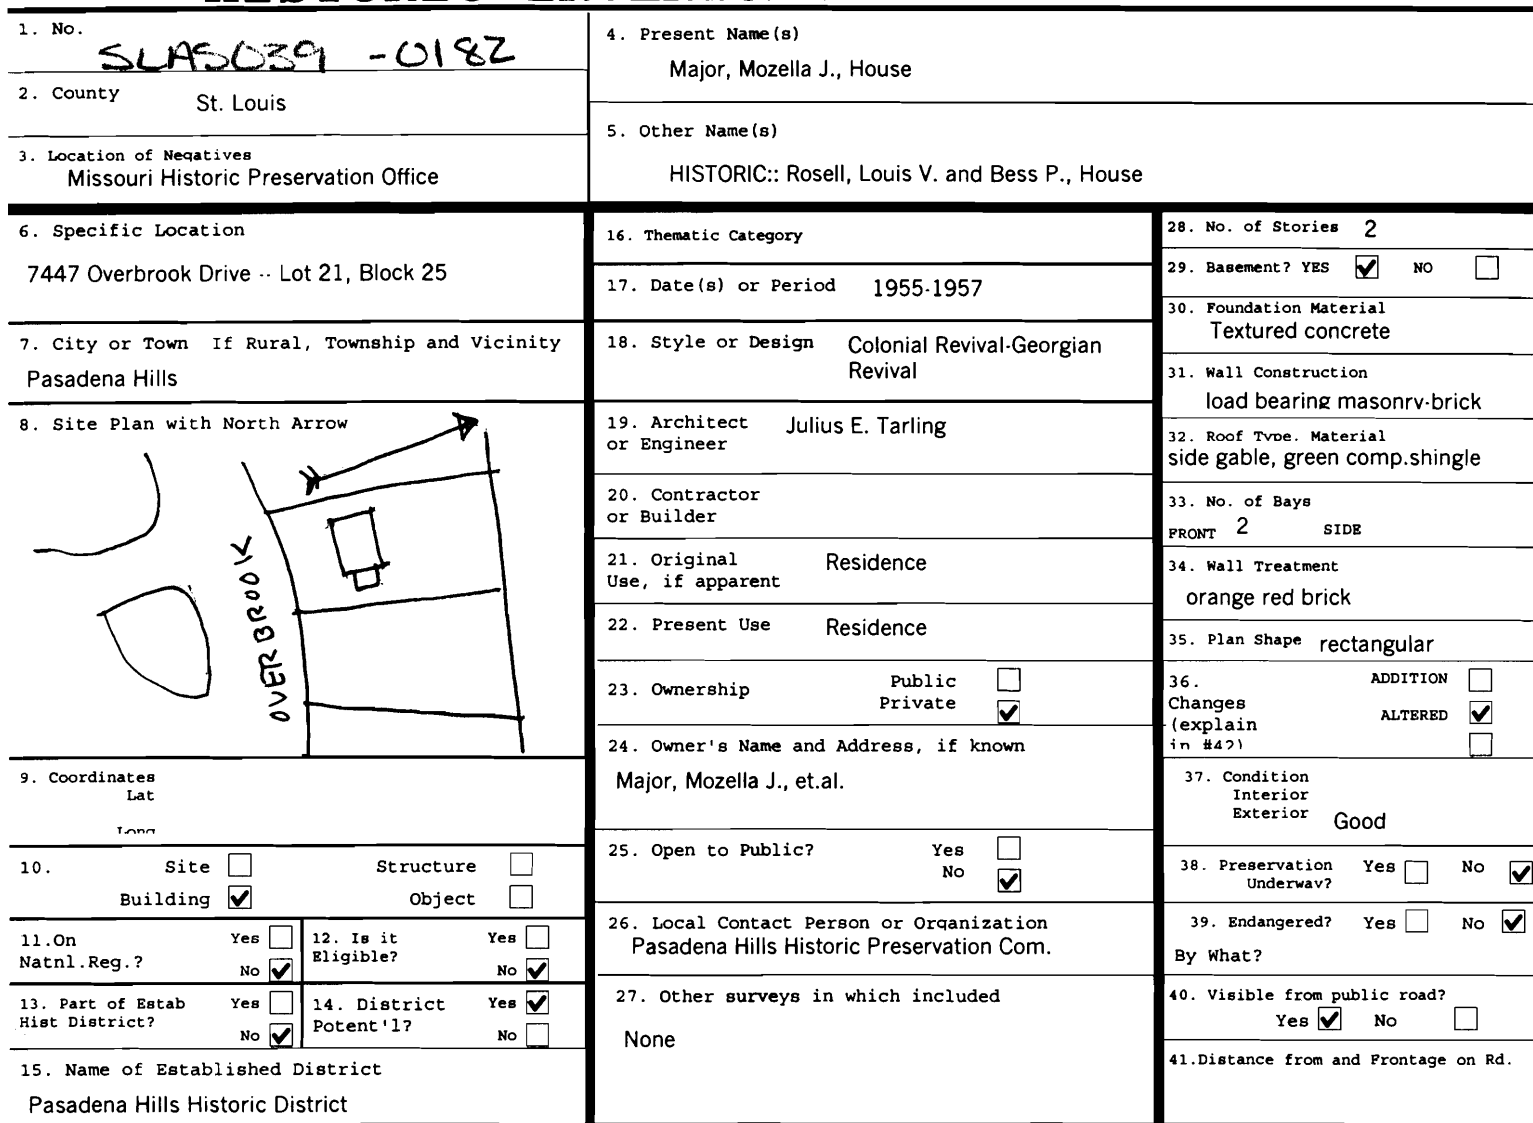 1. No.
SLAS039 -0182
2. County St. Louis
3. Location of Negatives
Missouri Historic Preservation Office
4. Present Name(s)
Major, Mozella J., House
5. Other Name(s)
HISTORIC:: Rosell, Louis V. and Bess P., House
6. Specific Location
7447 Overbrook Drive -- Lot 21, Block 25
7. City or Town If Rural, Township and Vicinity
Pasadena Hills
8. Site Plan with North Arrow
OVERBROOK
9. Coordinates
Lat
Long
10. Site Structure
Building ✔ Object
11.On Yes
Natnl.Reg.? No ✔
12. Is it Yes
Eligible? No ✔
13. Part of Estab Yes
Hist District? No ✔
14. District Yes ✔
Potent'l? No
15. Name of Established District
Pasadena Hills Historic District
16. Thematic Category
17. Date(s) or Period 1955-1957
18. Style or Design Colonial Revival-Georgian
Revival
19. Architect Julius E. Tarling
or Engineer
20. Contractor
or Builder
21. Original Residence
Use, if apparent
22. Present Use Residence
23. Ownership Public
Private ✔
24. Owner's Name and Address, if known
Major, Mozella J., et.al.
25. Open to Public? Yes
No ✔
26. Local Contact Person or Organization
Pasadena Hills Historic Preservation Com.
27. Other surveys in which included
None
28. No. of Stories 2
29. Basement? YES ✔ NO
30. Foundation Material
Textured concrete
31. Wall Construction
load bearing masonry-brick
32. Roof Type. Material
side gable, green comp.shingle
33. No. of Bays
FRONT 2 SIDE
34. Wall Treatment
orange red brick
35. Plan Shape rectangular
36. ADDITION
Changes
(explain ALTERED ✔
in #42)
37. Condition
Interior
Exterior Good
38. Preservation Yes No ✔
Underway?
39. Endangered? Yes No ✔
By What?
40. Visible from public road?
Yes ✔ No
41.Distance from and Frontage on Rd.